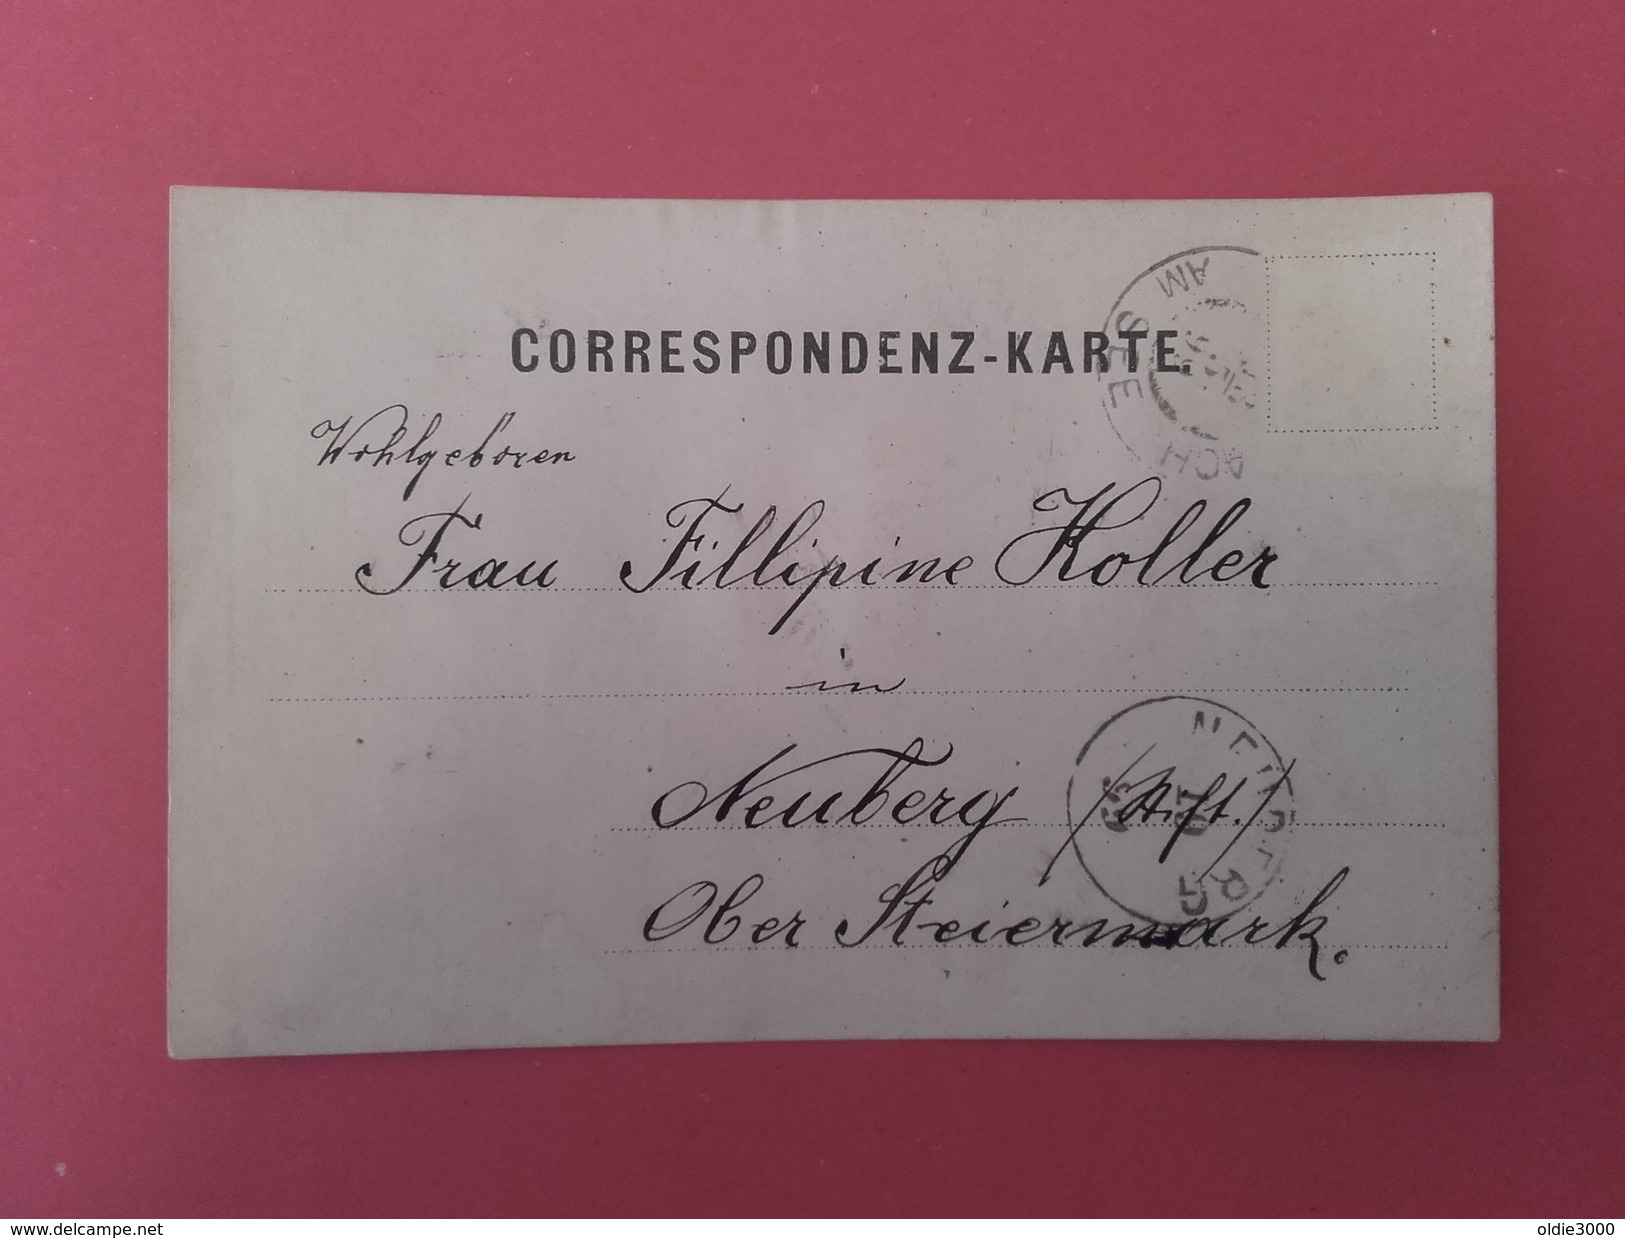 CORRESPONDENZ-KARTE.
AM SEE
ACH
Wohlgeboren
Frau Fillipine Koller
in
Neuberg
NEUBERG
10
99
Ober Steiermark.
www.delcampe.net
oldie3000